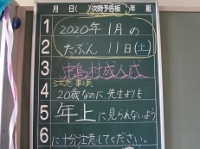 月 日( )次時予告板 年 組
1 2020年1月の
2 たぶん 11日(土)
3 成人式
4 注意事項
20歳なのに、先生よりも
5 年上に見られないよう
6 に十分注意してください。